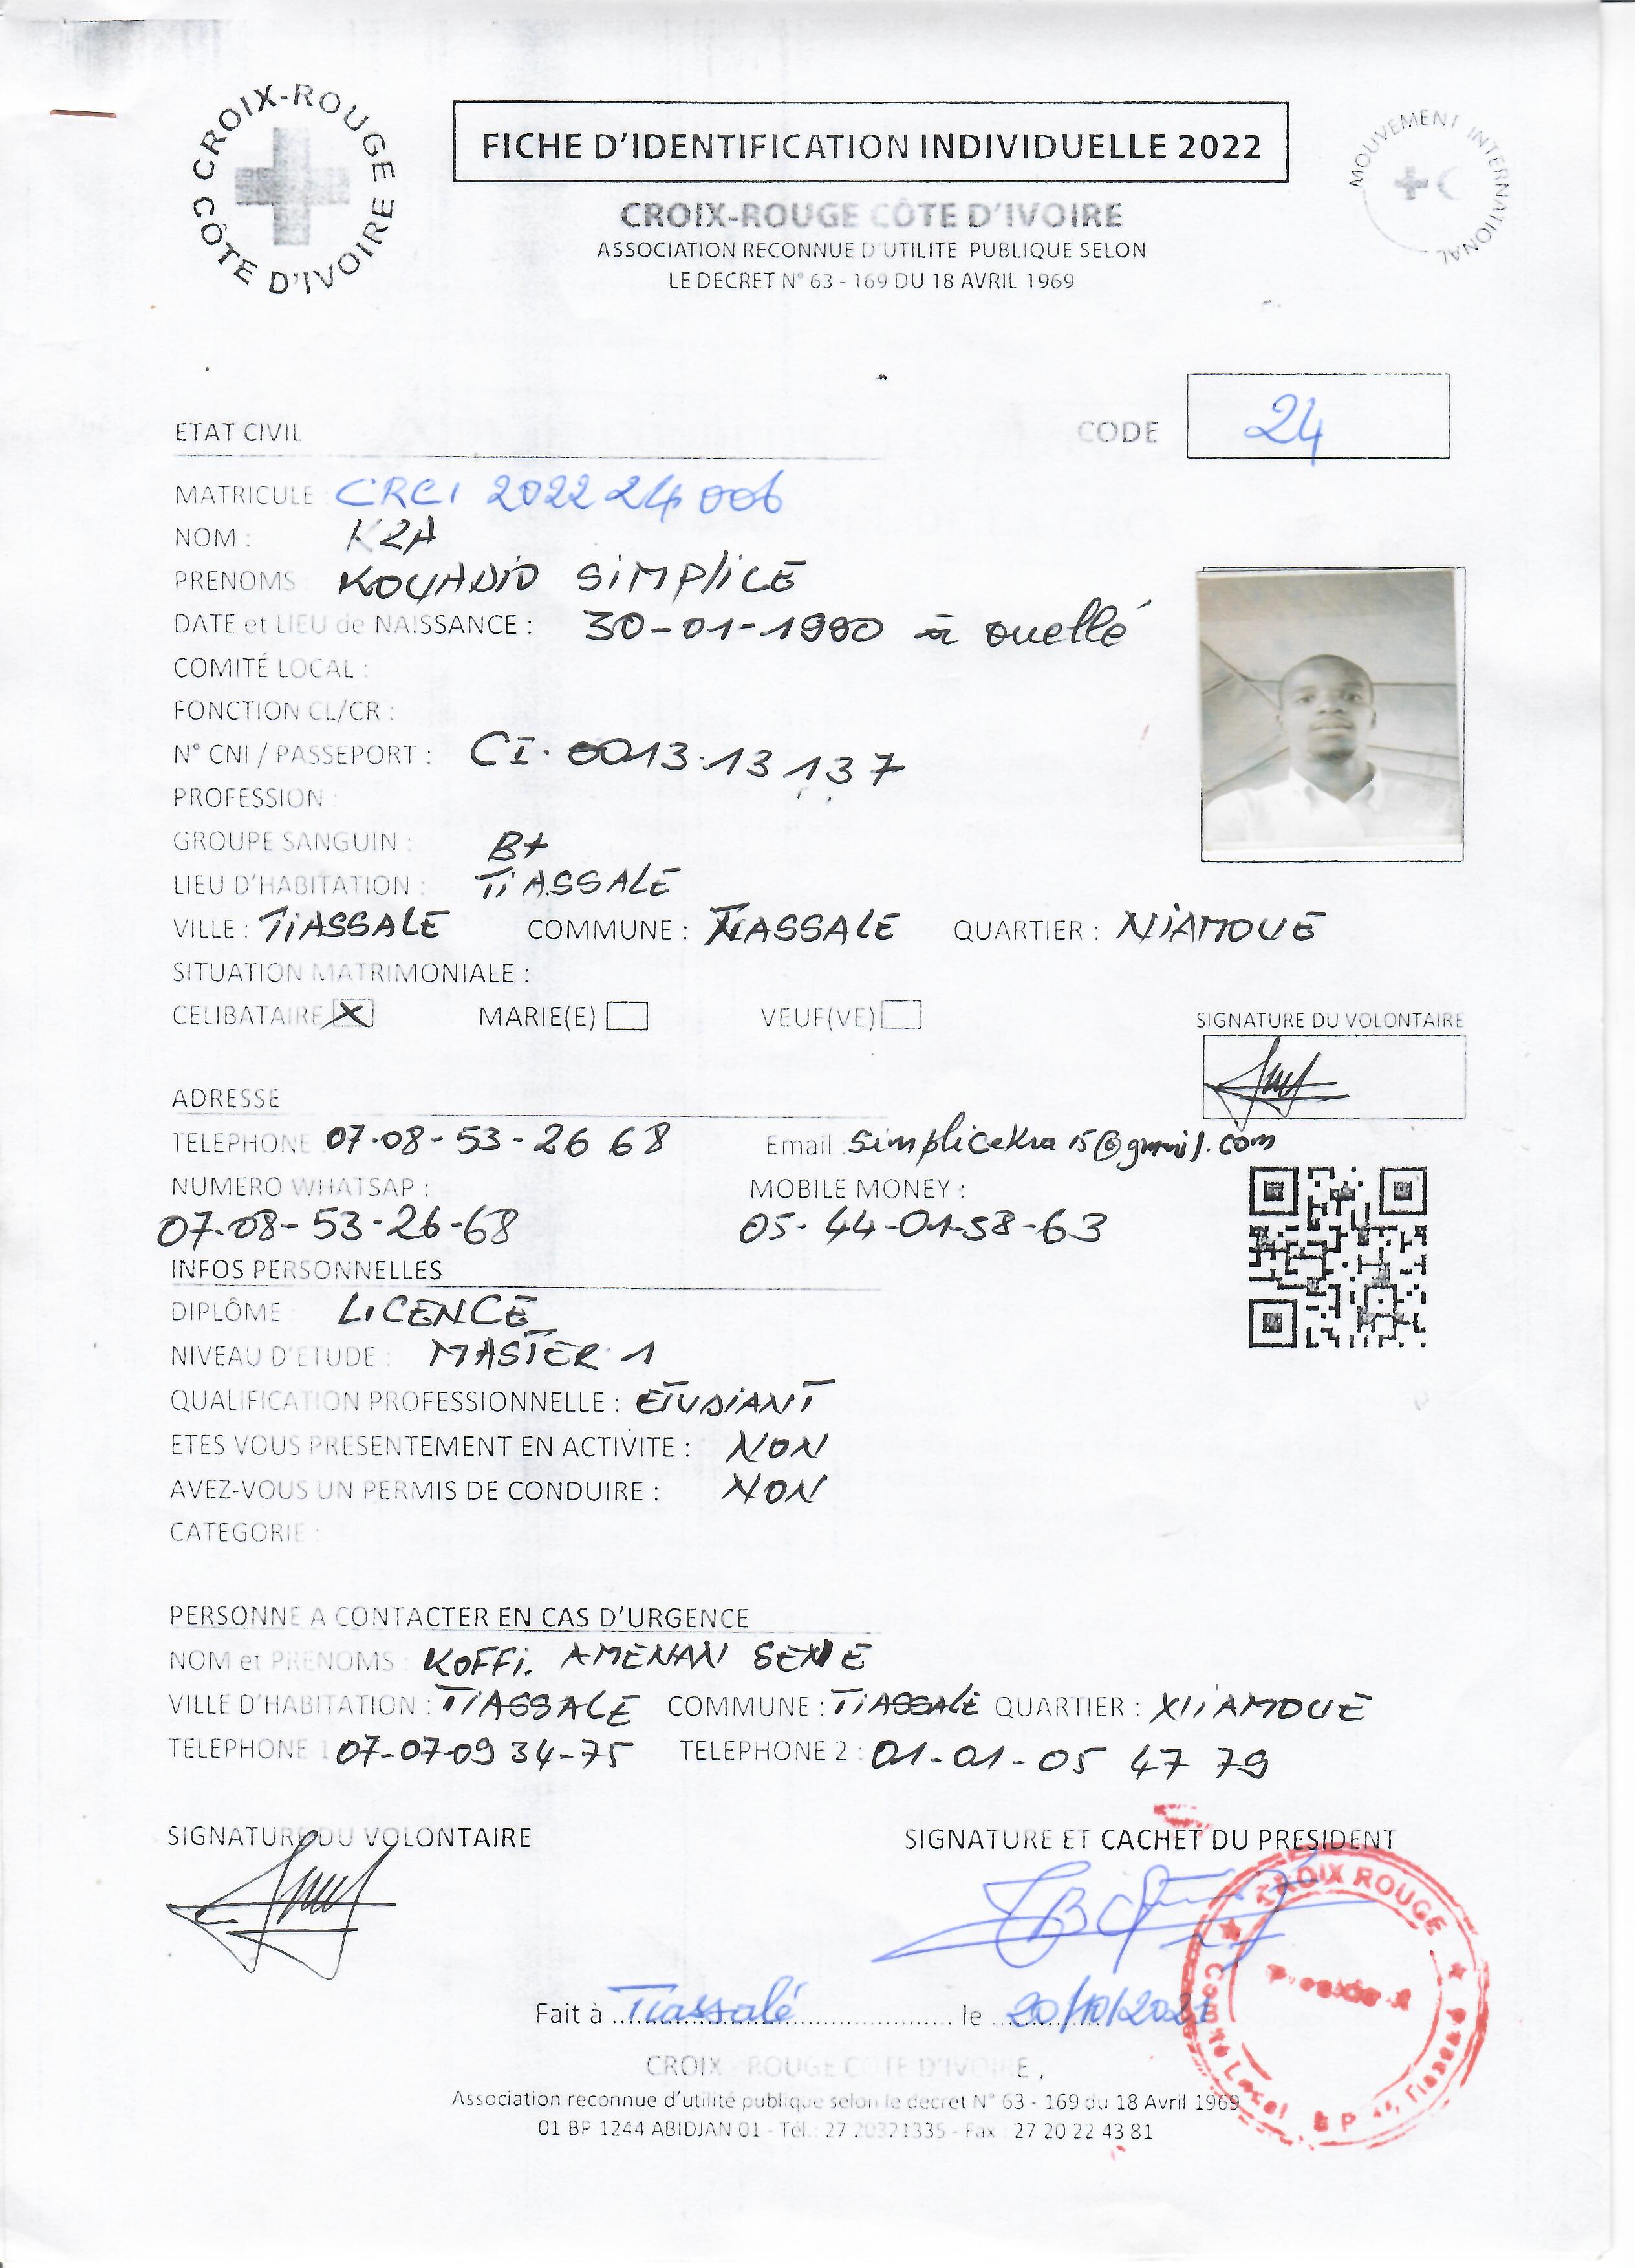 CROIX-ROUGE CÔTE D'IVOIRE
FICHE D'IDENTIFICATION INDIVIDUELLE 2022
MOUVEMENT INTERNATIONAL
CROIX-ROUGE CÔTE D'IVOIRE
ASSOCIATION RECONNUE D'UTILITE PUBLIQUE SELON
LE DECRET N° 63 - 169 DU 18 AVRIL 1969
ETAT CIVIL CODE 24
MATRICULE : CRCI 2022 24 006
NOM : KRA
PRENOMS KOUADIO SIMPLICE
DATE et LIEU de NAISSANCE : 30-01-1990 à ouellé
COMITÉ LOCAL :
FONCTION CL/CR :
N° CNI / PASSEPORT : CI. 0013.13 137
PROFESSION :
GROUPE SANGUIN : B+
LIEU D'HABITATION : TIASSALE
VILLE : TIASSALE COMMUNE : TIASSALE QUARTIER : NIAMOUE
SITUATION MATRIMONIALE :
CELIBATAIRE X MARIE(E) VEUF(VE)
SIGNATURE DU VOLONTAIRE
ADRESSE
TELEPHONE 07-08-53-26 68 Email simplicekra15@gmail.com
NUMERO WHATSAP : MOBILE MONEY :
07-08-53-26-68 05-44-01-58-63
INFOS PERSONNELLES
DIPLÔME LICENCE
NIVEAU D'ETUDE : MASTER 1
QUALIFICATION PROFESSIONNELLE : ETUDIANT
ETES VOUS PRESENTEMENT EN ACTIVITE : NON
AVEZ-VOUS UN PERMIS DE CONDUIRE : NON
CATEGORIE :
PERSONNE A CONTACTER EN CAS D'URGENCE
NOM et PRENOMS : KOFFI. AMENAN
VILLE D'HABITATION : TIASSALE COMMUNE : TIASSALE QUARTIER : NIAMOUE
TELEPHONE 1 07-07-09 34-75 TELEPHONE 2 : 01-01-05 47 79
SIGNATURE DU VOLONTAIRE SIGNATURE ET CACHET DU PRESIDENT
CROIX ROUGE
Comité Local
Fait à Tiassalé le 20/10/2021
CROIX - ROUGE COTE D'IVOIRE,
Association reconnue d'utilité publique selon le decret N° 63 - 169 du 18 Avril 1969
01 BP 1244 ABIDJAN 01 - Tél.: 27 20321335 - Fax : 27 20 22 43 81